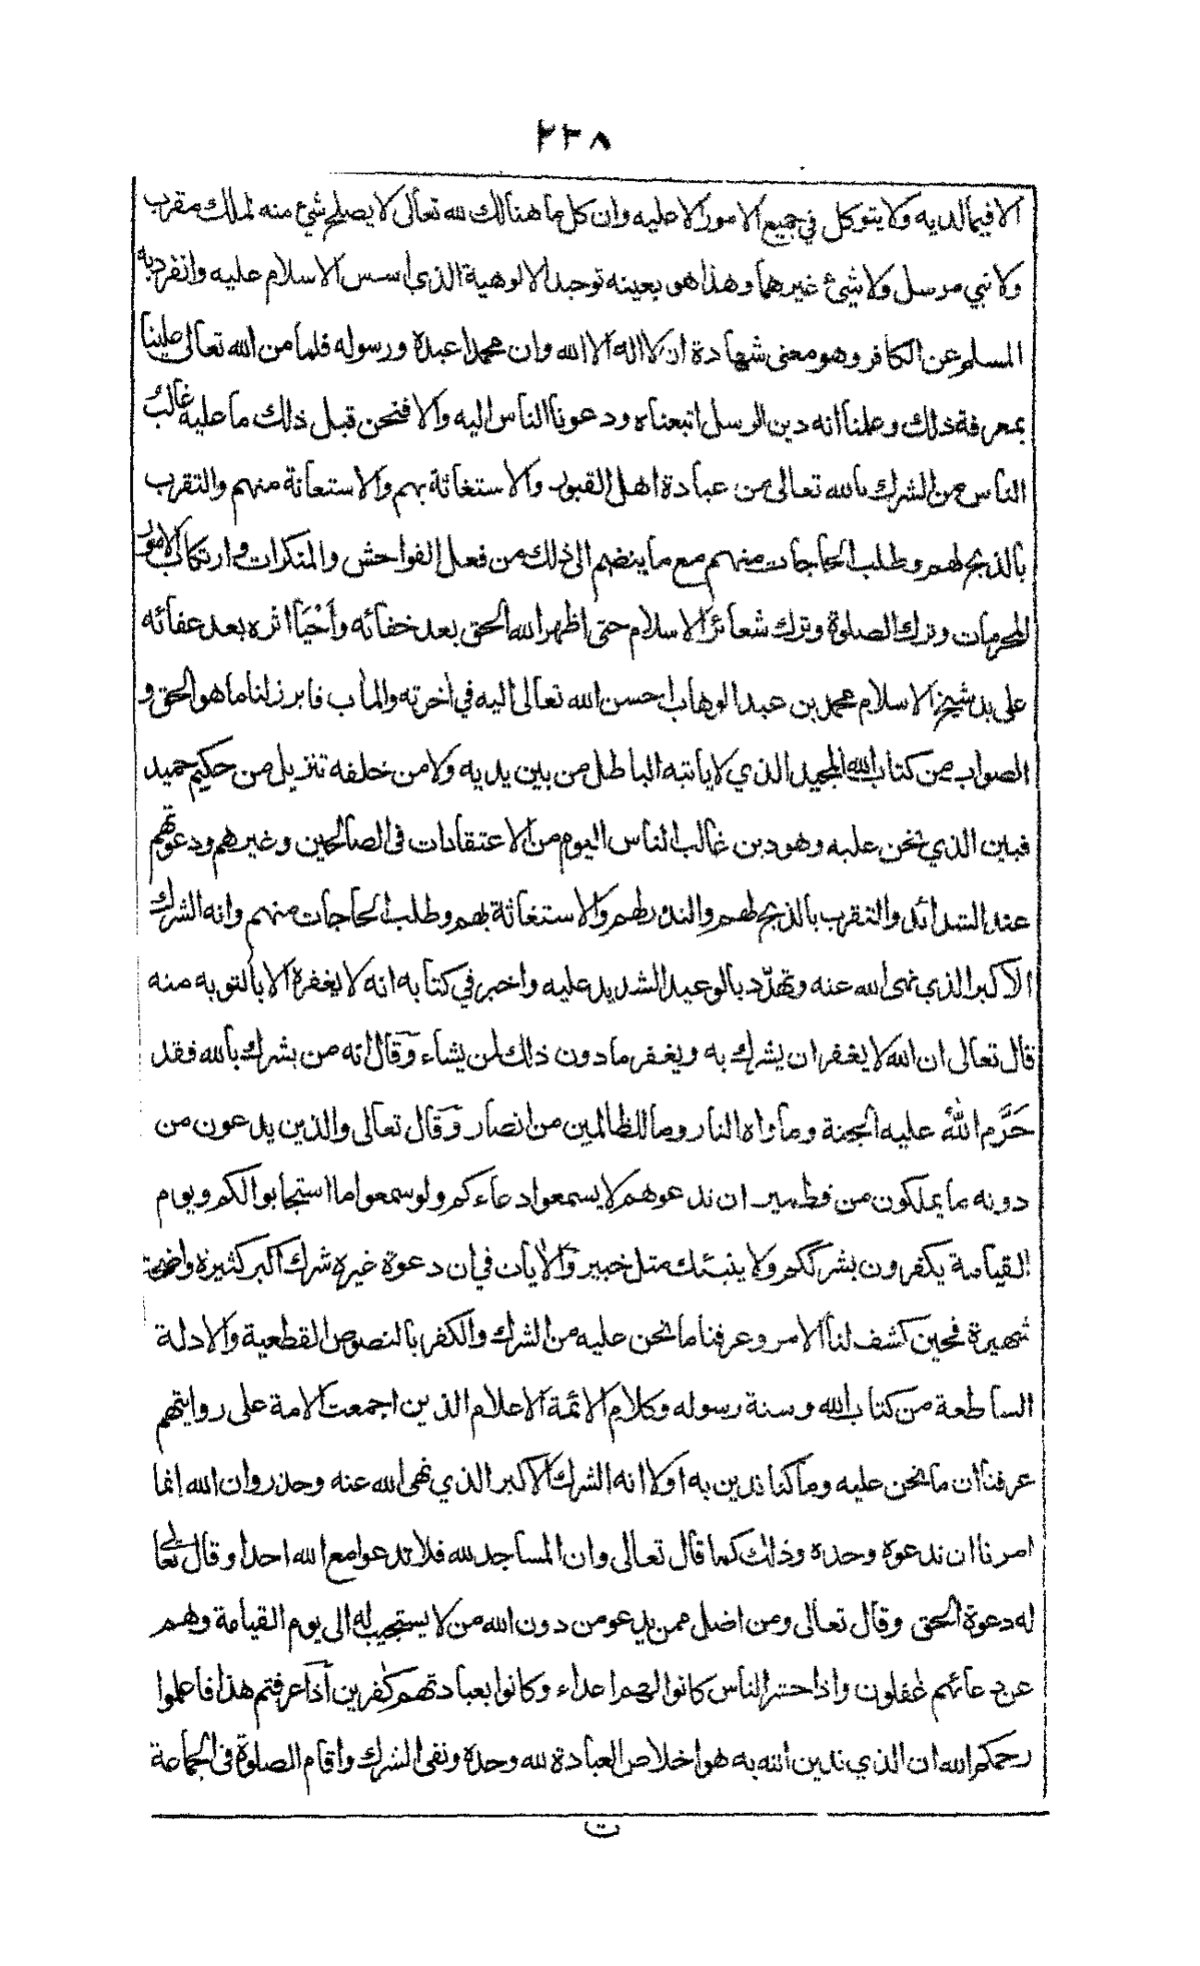 ٢٣٨
الا فيما لديه ولا يتوكل في جميع الامور الا عليه وان كل ما هنالك لله تعالى لا يصلح شئ منه لملك مقرب
ولا نبي مرسل ولا شئ غيرهما وهذا هو بعينه توحيد الالوهية الذي اسس الاسلام عليه وانفرد به
المسلم عن الكافر وهو معنى شهادة ان لا اله الا الله وان محمدا عبده ورسوله فلما من الله تعالى علينا
بمعرفة ذلك وعلمنا انه دين الرسل اتبعناه ودعونا الناس اليه والا فنحن قبل ذلك ما عليه غالب
الناس من الشرك بالله تعالى من عبادة اهل القبور والاستغاثة بهم والاستعانة منهم والتقرب
بالذبح لهم وطلب الحاجات منهم مع ما ينضم الى ذلك من فعل الفواحش والمنكرات وارتكاب الامور
المحرمات وترك الصلوة وترك شعائر الاسلام حتى اظهر الله الحق بعد خفائه وأحْيَا اثره بعد عفائه
على يد شيخ الاسلام محمد بن عبد الوهاب احسن الله تعالى اليه في اخرته والمأب فابرز لنا ما هو الحق و
الصواب من كتاب الله المجيد الذي لا ياتيه الباطل من بين يديه ولا من خلفه تنزيل من حكيم حميد
فبين الذي نحن عليه وهو دين غالب الناس اليوم من الاعتقادات فى الصالحين وغيرهم ودعوتهم
عند الشدائد والتقرب بالذبح لهم والنذر لهم والاستغاثة بهم وطلب الحاجات منهم وانه الشرك
الاكبر الذي نهى الله عنه وتهدّد بالوعيد الشديد عليه واخبر في كتابه انه لا يغفره الا بالتوبه منه
قال تعالى ان الله لا يغفر ان يشرك به ويغفر ما دون ذلك لمن يشاء وقال انه من يشرك بالله فقد
حَرَّم اللهُ عليه الجنة وماواه النار وما للظالمين من انصار وقال تعالى والذين يدعون من
دونه ما يملكون من قطمير ان تدعوهم لا يسمعوا دعاءكم ولو سمعوا ما استجابوا لكم ويوم
القيامة يكفرون بشرككم ولا ينبئك مثل خبير والايات في ان دعوة غيره شرك اكبر كثيرة واضحة
شهيرة فحين كشف لنا الامر وعرفنا ما نحن عليه من الشرك والكفر بالنصوص القطعية والادلة
الساطعة من كتاب الله وسنة رسوله وكلام الائمة الاعلام الذين اجمعت الامة على روايتهم
عرفنا ان ما نحن عليه وما كنا ندين به اولا انه الشرك الاكبر الذي نهى الله عنه وحذر وان الله انما
امرنا ان ندعوه وحده وذلك كما قال تعالى وان المساجد لله فلا تدعوا مع الله احدا وقال تعالى
له دعوة الحق وقال تعالى ومن اضل ممن يدعو من دون الله من لا يستجيب له الى يوم القيامة وهم
عن دعائهم غفلون واذا حشر الناس كانوا لهم اعداء وكانوا بعبادتهم كفرين اذا عرفتم هذا فاعلموا
رحمكم الله ان الذي ندين الله به هو اخلاص العبادة لله وحده ونفى الشرك واقام الصلوة فى الجماعة
ت